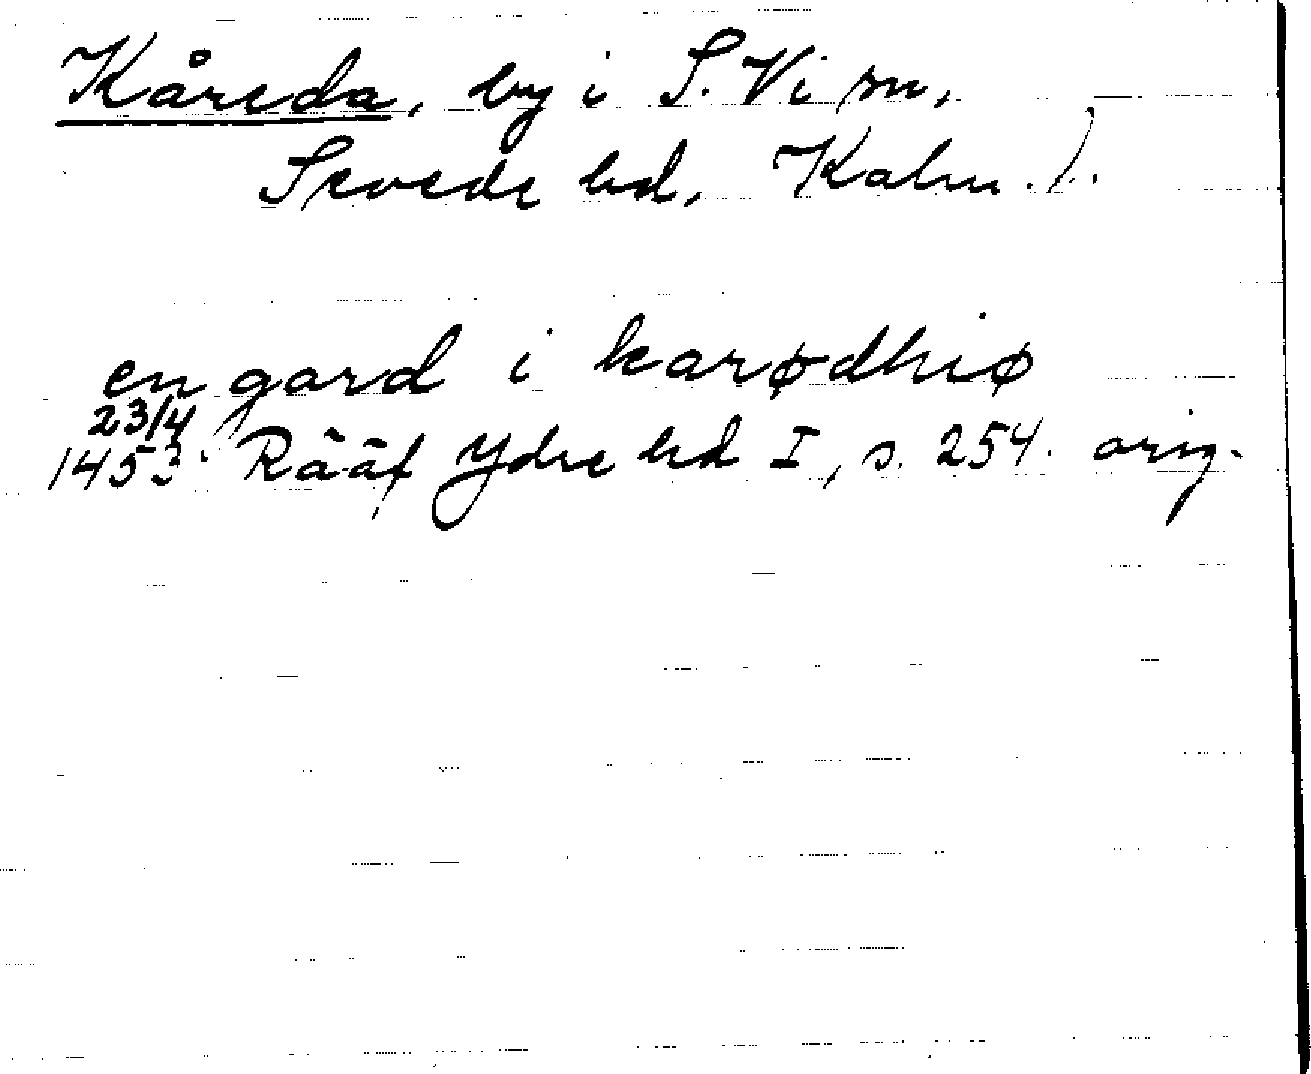 Kåreda, by i S. Vi sn,
Sevede hd, Kalm. l.
en gard i karødhiø
23/4
1453. Rääf Ydre hd I, s. 254. orig.